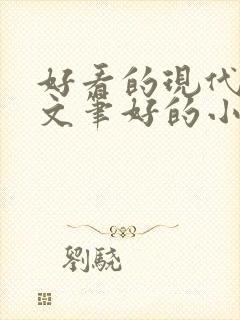 好看的現代
文筆好的小
劉驍